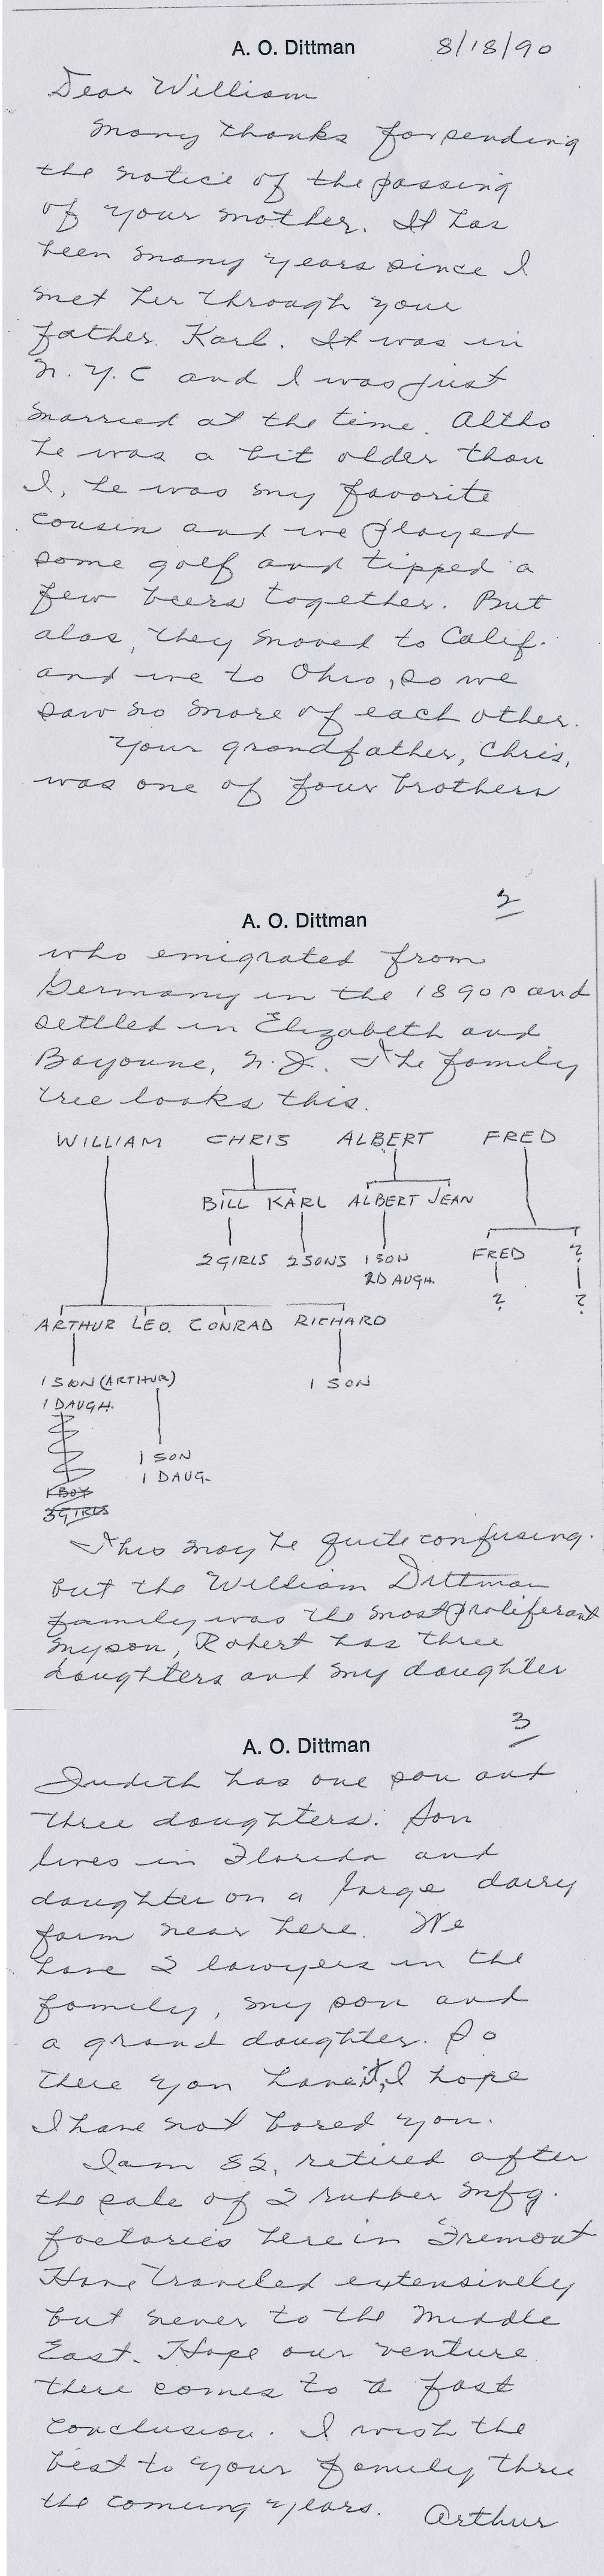 A. O. Dittman 8/18/90
Dear William
Many thanks for sending
the notice of the passing
of your mother. It has
been many years since I
met her through your
father Karl. It was in
N. Y. C and I was just
married at the time. Altho
he was a bit older than
I, he was my favorite
cousin and we played
some golf and tipped a
few beers together. But
alas, they moved to Calif.
and we to Ohio, so we
saw no more of each other.
Your grandfather, Chris,
was one of four brothers
2
A. O. Dittman
who emigrated from
Germany in the 1890s and
settled in Elizabeth and
Bayonne, N. J. The family
tree looks this.
WILLIAM CHRIS ALBERT FRED
BILL KARL ALBERT JEAN
2 GIRLS 2 SONS 1 SON FRED ?
2 DAUGH.
? ?
ARTHUR LEO. CONRAD RICHARD
1 SON (ARTHUR) 1 SON
1 DAUGH.
1 SON
1 DAUG.
1 BOY
3 GIRLS
This may be quite confusing.
but the William Dittman
family was the most proliferant
my son, Robert has three
daughters and my daughter
3
A. O. Dittman
Judith has one son and
three daughters. Son
lives in Florida and
daughter on a large dairy
farm near here. We
have 2 lawyers in the
family, my son and
a grand daughter. So
there you have it, I hope
I have not bored you.
I am 82, retired after
the sale of 2 rubber mfg.
factories here in Fremont
Have traveled extensively
but never to the Middle
East. Hope our venture
there comes to a fast
conclusion. I wish the
best to your family three
the coming years. Arthur